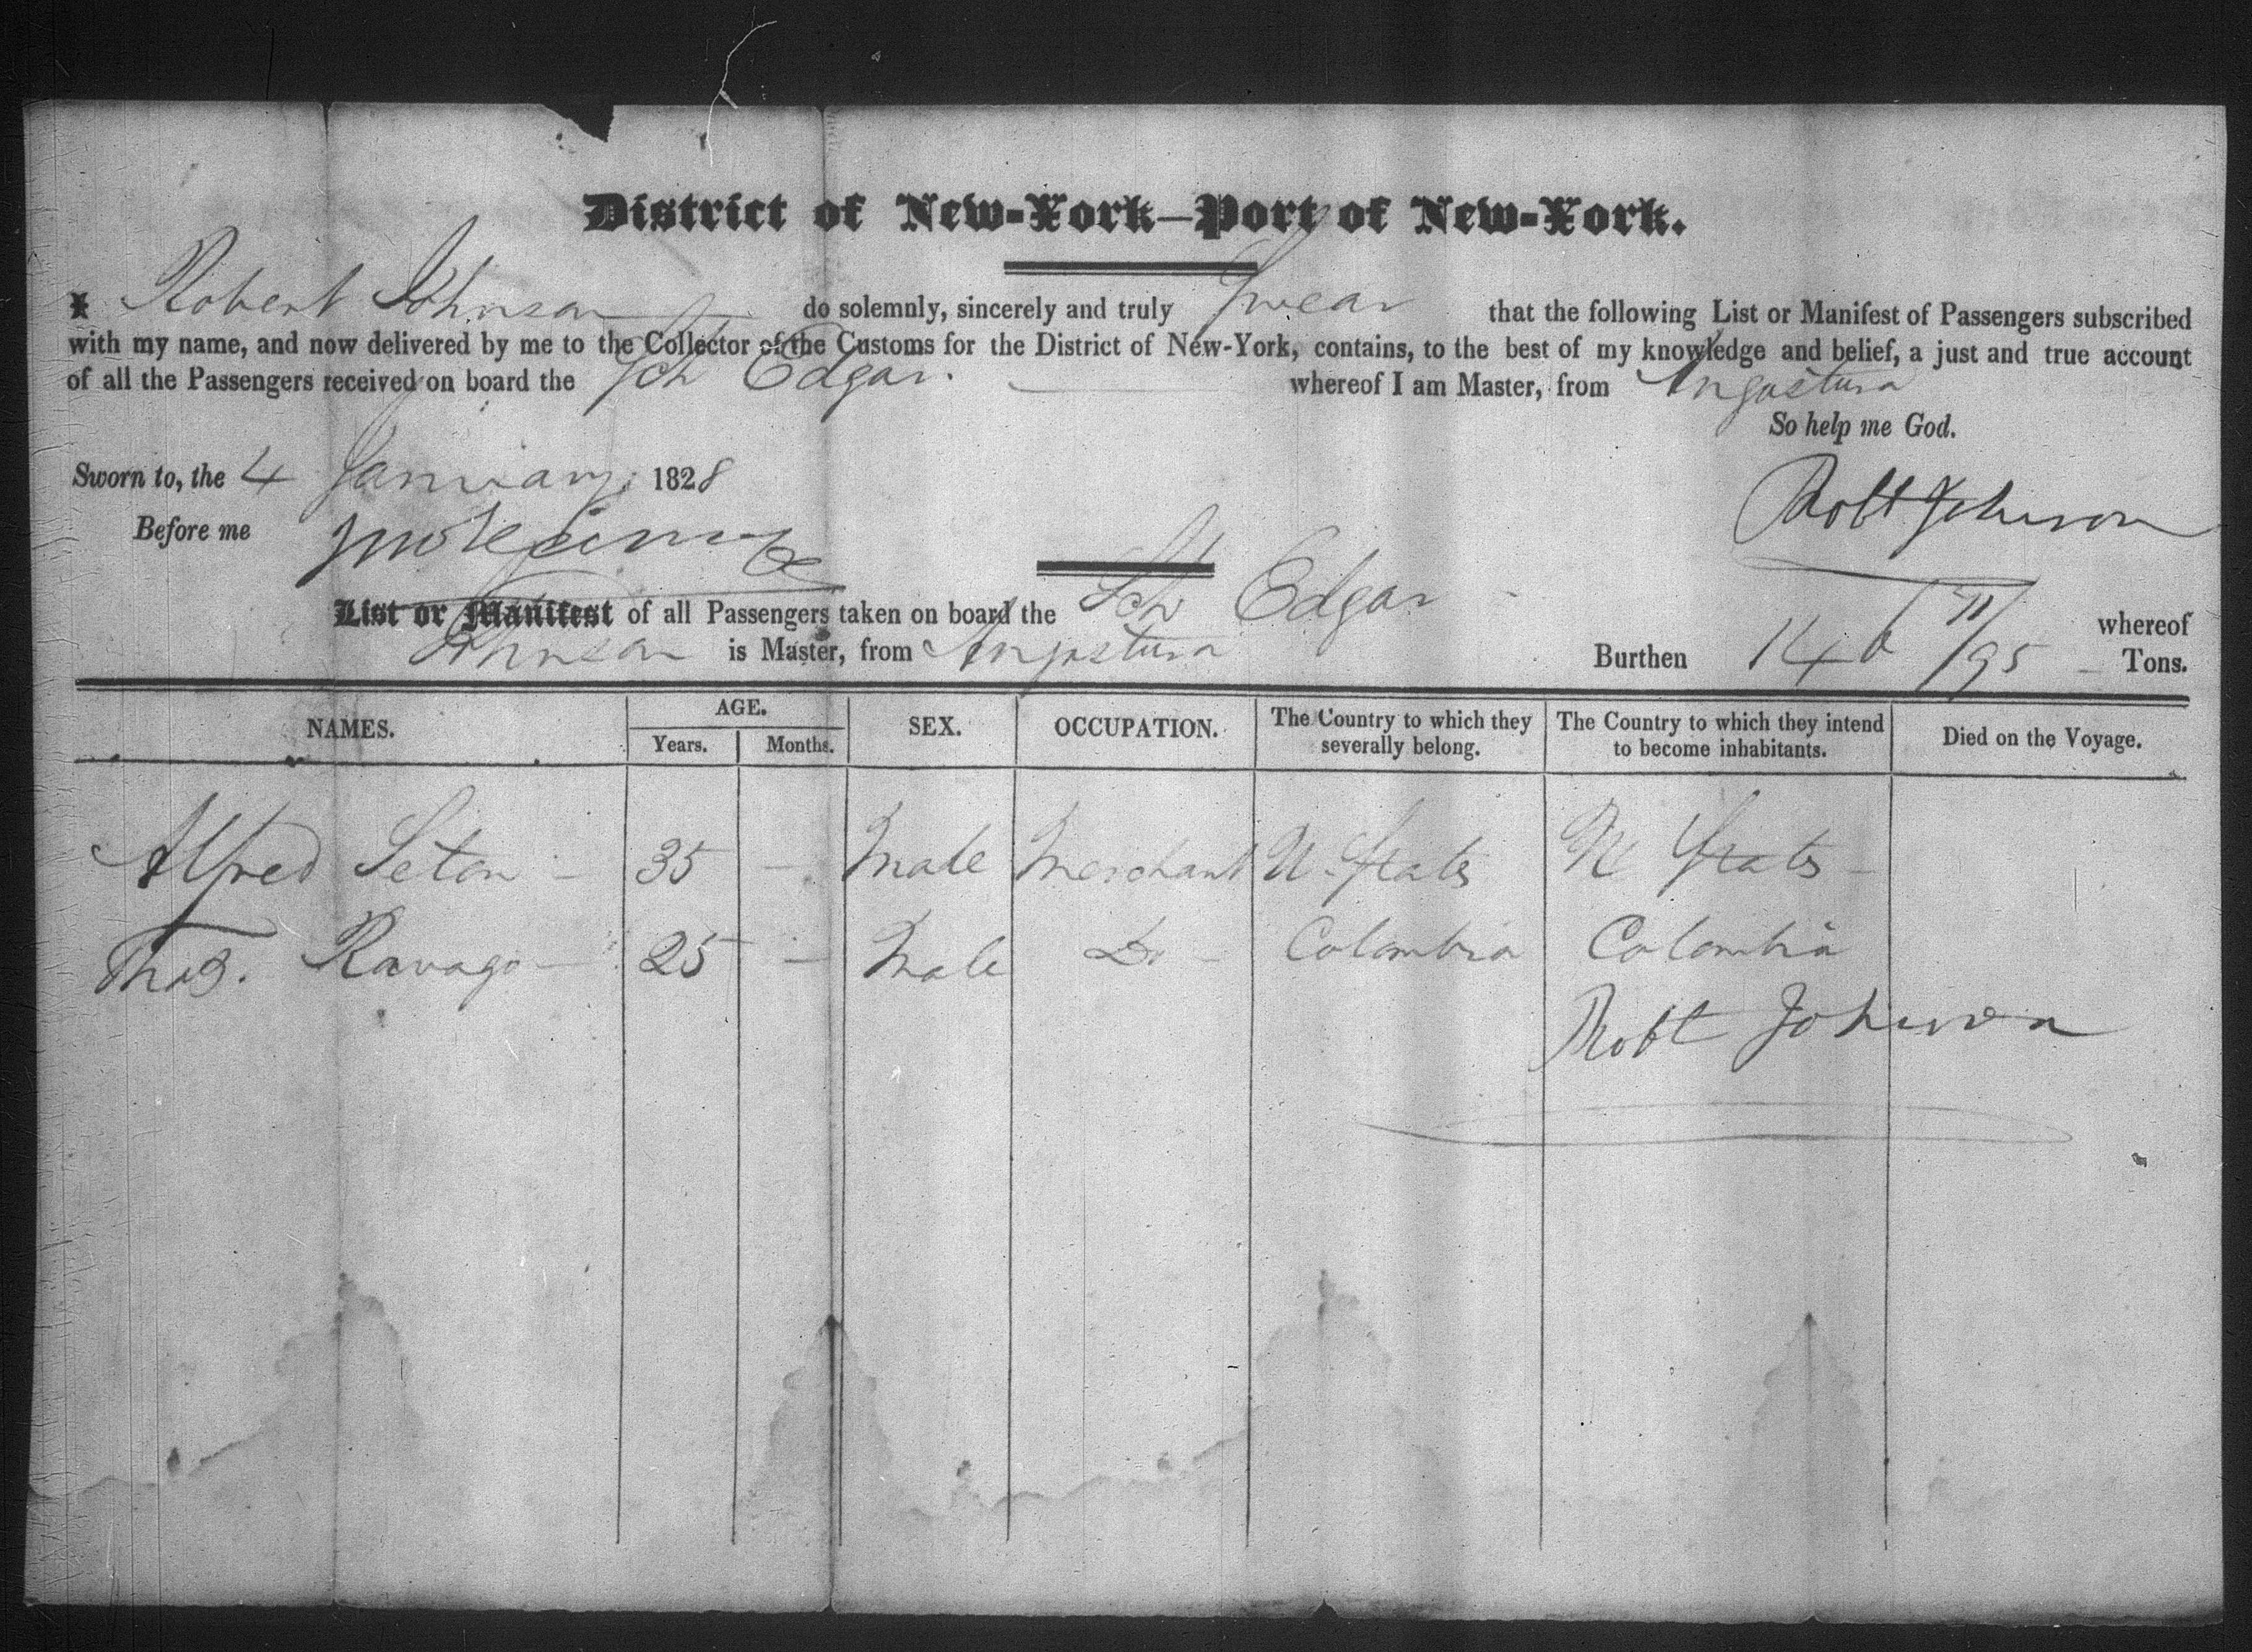 District of New-York—Port of New-York.
I Robert Johnson do solemnly, sincerely and truly Swear that the following List or Manifest of Passengers subscribed
with my name, and now delivered by me to the Collector of the Customs for the District of New-York, contains, to the best of my knowledge and belief, a just and true account
of all the Passengers received on board the Sch Edgar. whereof I am Master, from Angostura
So help me God.
Sworn to, the 4 January 1828
Robt Johnson
Before me
List or Manifest of all Passengers taken on board the Sch Edgar whereof
Johnson is Master, from Angostura Burthen 146 71/95 Tons.
NAMES. AGE. Years. Months. SEX. OCCUPATION. The Country to which they severally belong. The Country to which they intend to become inhabitants. Died on the Voyage.
Alfred Seton — 35 — Male Merchant U. States U States —
Thos. Ravago — 25 — Male Do — Colombia Colombia
Robt Johnson